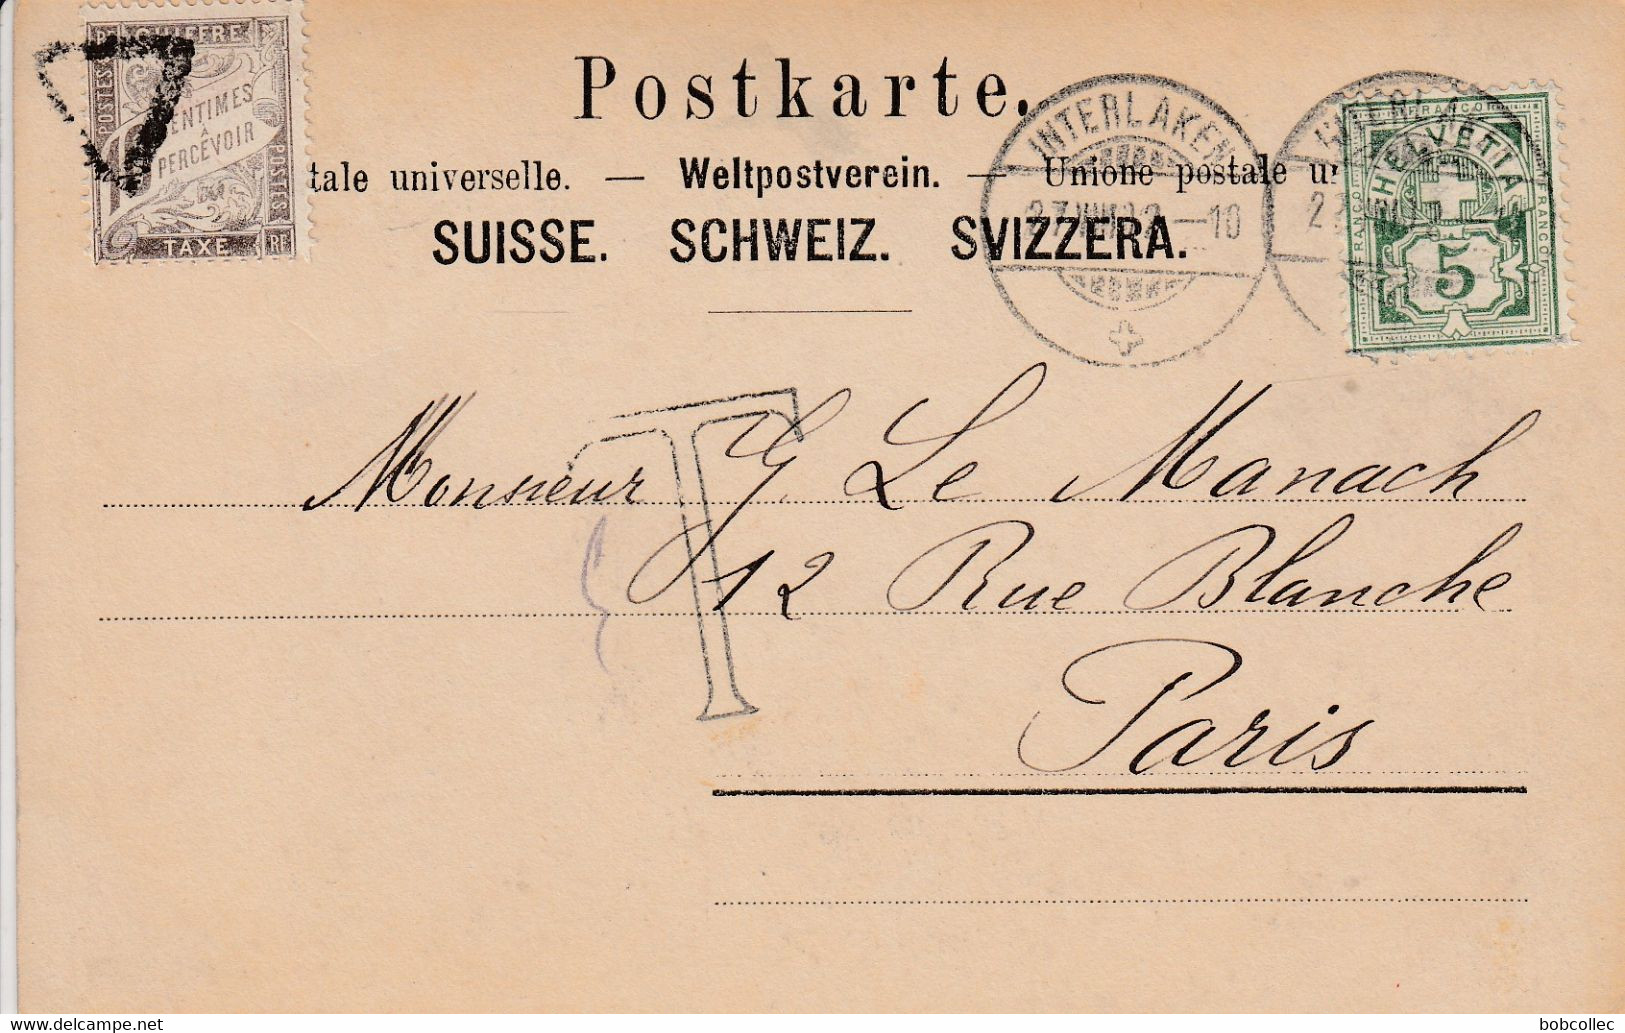 Postkarte.
tale universelle. — Weltpostverein. — Unione postale u
SUISSE. SCHWEIZ. SVIZZERA.
CHIFFRE
POSTES
CENTIMES
À
PERCEVOIR
POSTES
TAXE
RF
INTERLAKEN
–10
FRANCO
HELVETIA
FRANCO
FRANCO
5
T
Monsieur G. Le Manach
12 Rue Blanche
Paris
bobcollec